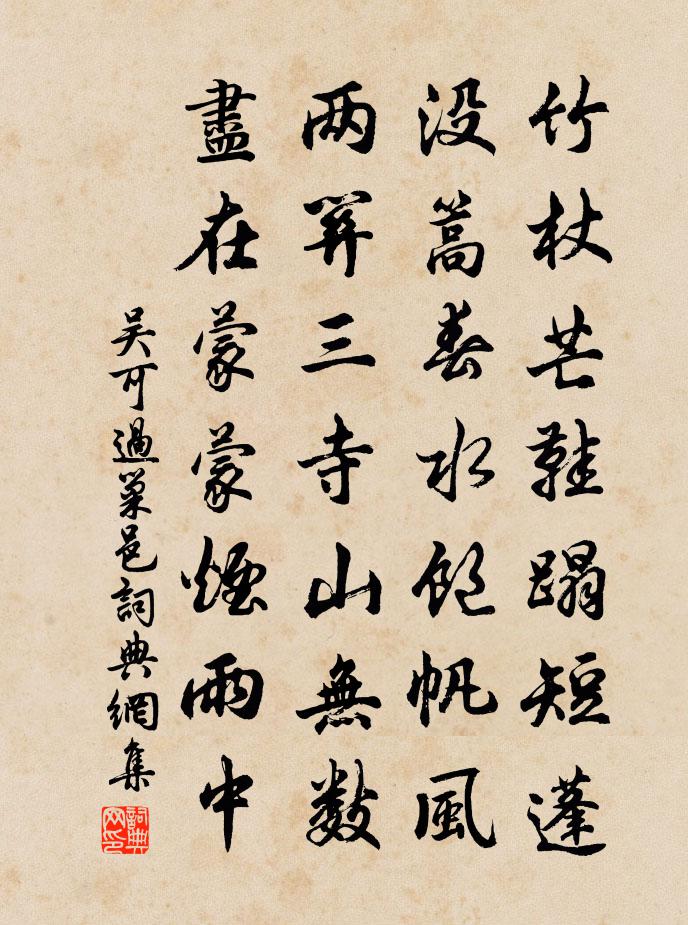 竹杖芒鞋蹋短蓬
没篙春水飽帆風
两笄三寺山無數
盡在蒙蒙煙雨中
吴可過巢邑詞典網集
詞典网印